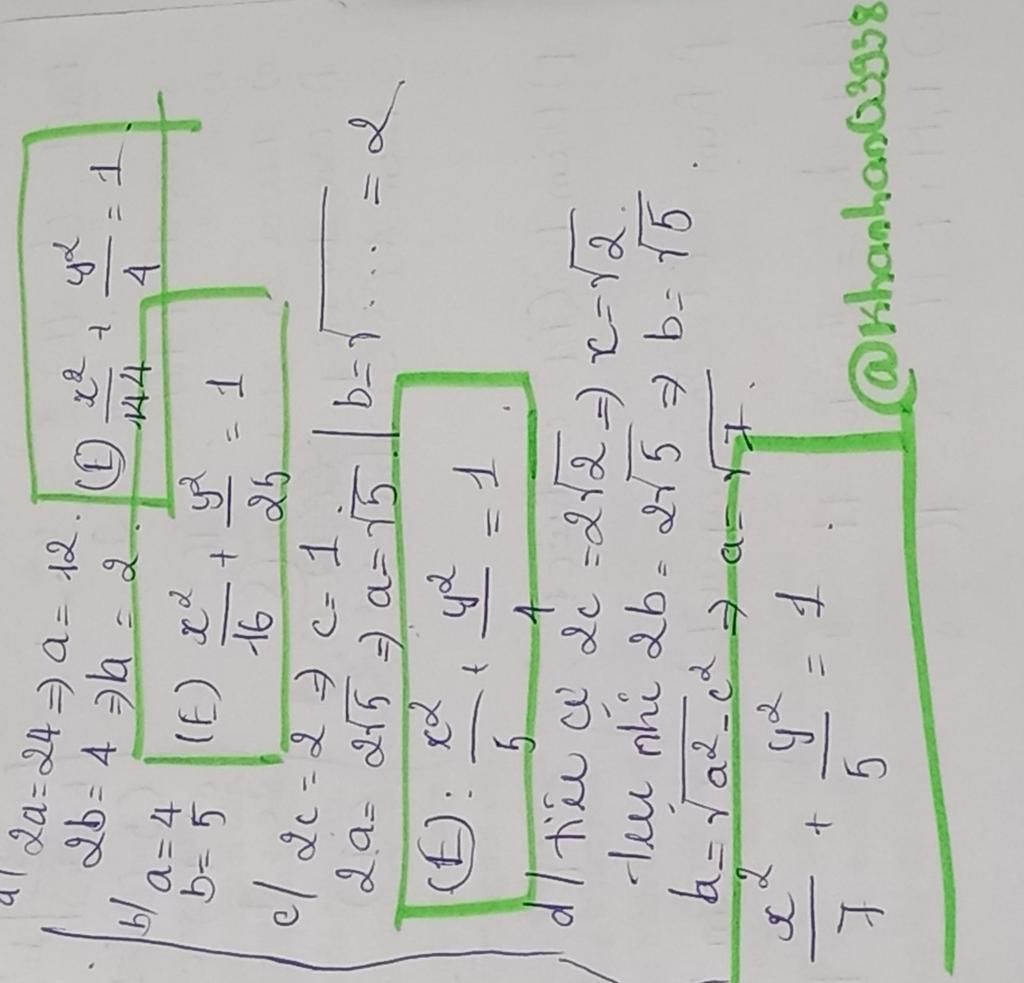 a/ 2a = 24 => a = 12.
2b = 4 => b = 2.
(E) x²/144 + y²/4 = 1
b/ a = 4
b = 5
(E) x²/16 + y²/25 = 1
c/ 2c = 2 => c = 1
2a = 2√5 => a = √5 | b = √... = 2
(E): x²/5 + y²/4 = 1
d/ tiêu cự 2c = 2√2 => c = √2.
b = √a² - c² => a = √7.
2b = 2√5 => b = √5
x²/7 + y²/5 = 1
@Khanhanh23938